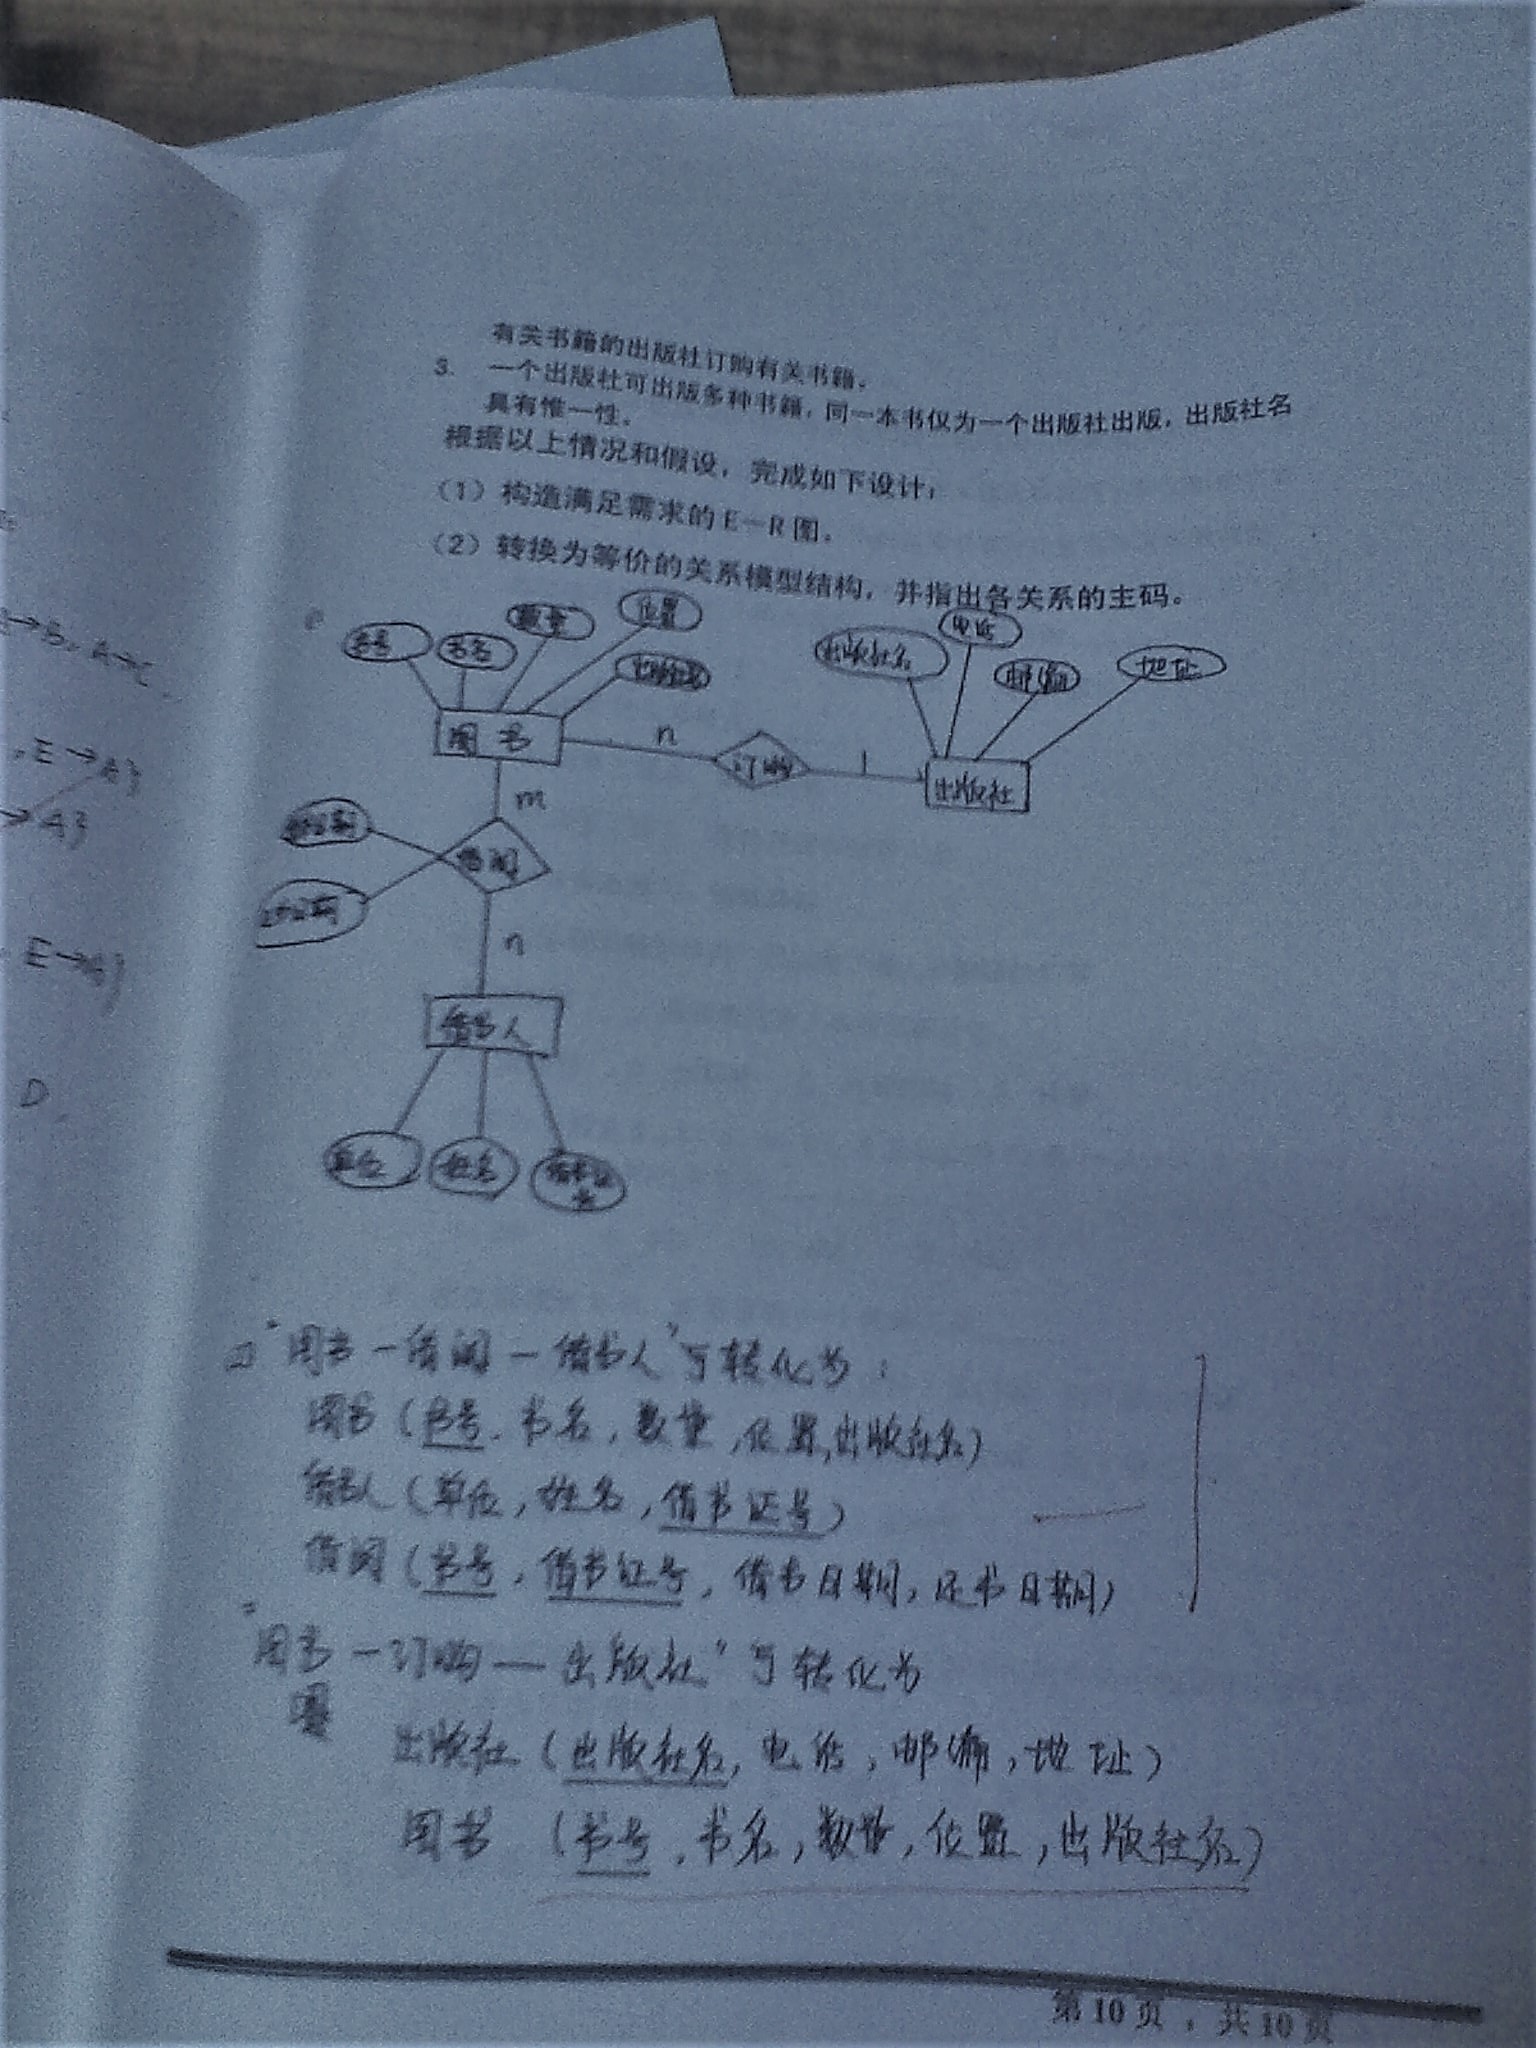 有关书籍的出版社订购有关书籍。
3. 一个出版社可出版多种书籍，同一本书仅为一个出版社出版，出版社名
具有惟一性。
根据以上情况和假设，完成如下设计：
（1）构造满足需求的E－R图。
（2）转换为等价的关系模型结构，并指出各关系的主码。
书号 书名 数量 位置 出版社名
出版社名 电话 邮编 地址
图书 n 订购 1 出版社
m
借阅
n
借书人
单位 姓名 借书证号
→B, A→C
, E→A}
→A}
E→A}
D.
"图书－借阅－借书人"可转化为：
图书（书号, 书名, 数量, 位置, 出版社名）
借书人（单位, 姓名, 借书证号）
借阅（书号, 借书证号, 借书日期, 还书日期）
"图书－订购—出版社"可转化为
出版社（出版社名, 电话, 邮编, 地址）
图书（书号, 书名, 数量, 位置, 出版社名）
第 10 页，共 10 页